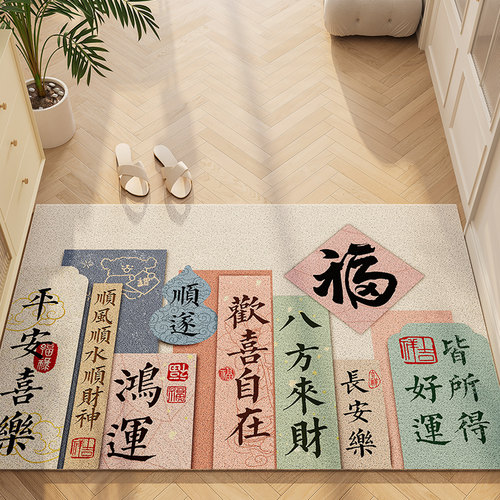 平安喜樂
順風順水順財神
鴻運
順遂
歡喜自在
八方來財
福
長安樂
皆所得
好運
吉祥